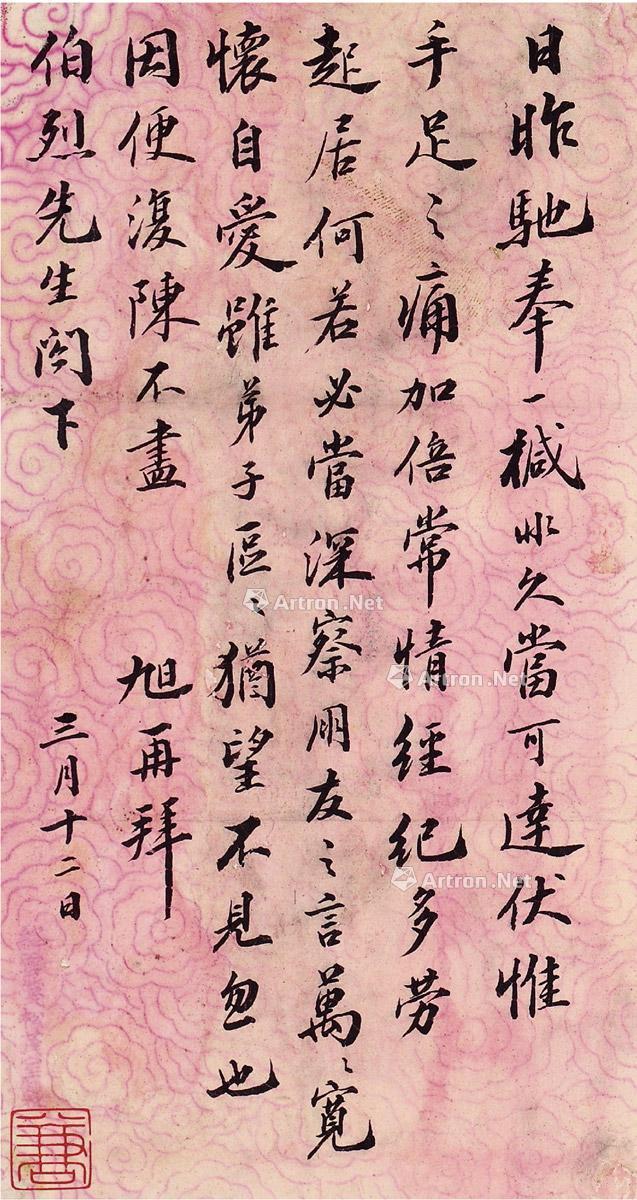 日昨馳奉一槭非久當可達伏惟
手足之痛加倍常情經紀多勞
起居何若必當深察朋友之言萬〻寬
懷自愛雖弟子區〻猶望不見忽也
因便復陳不盡 旭再拜
三月十二日
伯烈先生閤下
Artron.Net
Artron.Net
Artron.Net